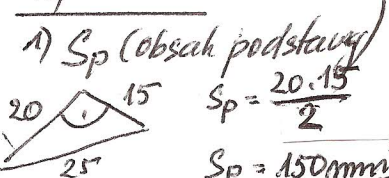 1) Sp (obsah podstavy)
20 15 Sp = 20.15
2
25
Sp = 150mm